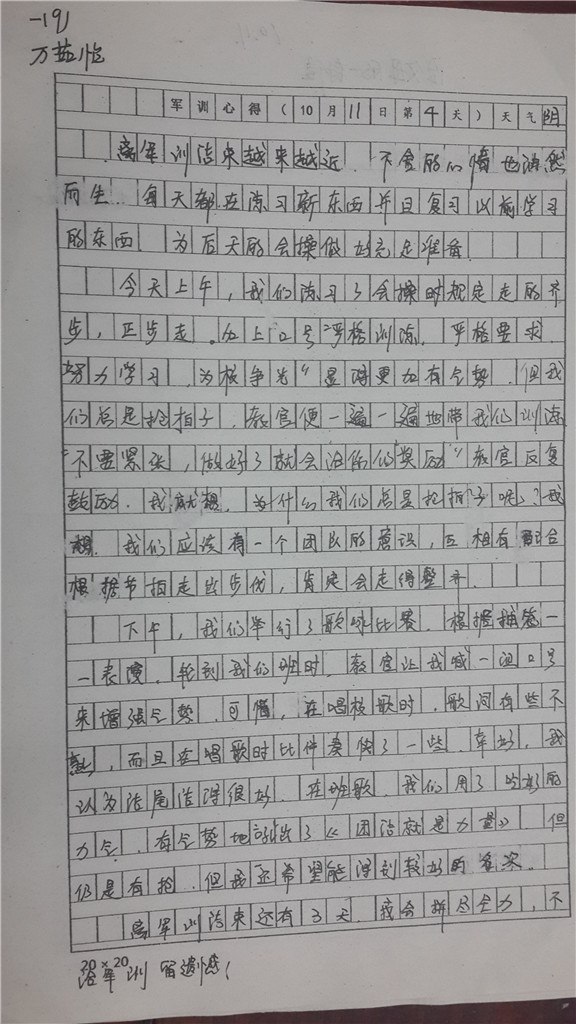 万
军训心得(10月11日第4天)天气阴
离军训结束越来越近.不舍的心情也油然
而生.每天都在练习新东西并且复习以前学习
的东西.为后天的会操做好充足准备.
今天上午,我们练习了会操时规定走的齐
步,正步走.加上口号"严格训练.严格要求.
努力学习.为校争光"显得更加有气势.但我
们总是抢拍子.教官便一遍一遍地带我们训练
"不要紧张,做好了就会给你们奖励"教官反复
鼓励.我就想.为什么我们总是抢拍子呢?我
想.我们应该有一个团队的意识,互相有配合
根据节拍走出步伐,肯定会走得整齐.
下午,我们举行了歌咏比赛.根据抽签一
一表演.轮到我们班时.教官让我喊一遍口号
来增强气势.可惜,在唱校歌时.歌词有些不
熟,而且在唱歌时比伴奏快了一些.幸好,我
以为结尾结得很好.在班歌.我们用了吃奶的
力气.有气势地唱出了《团结就是力量》.但
仍是有抢.但我还希望能得到较好的名次。
离军训结束还有3天.我会拼尽全力,不
20×20
给军训留遗憾!